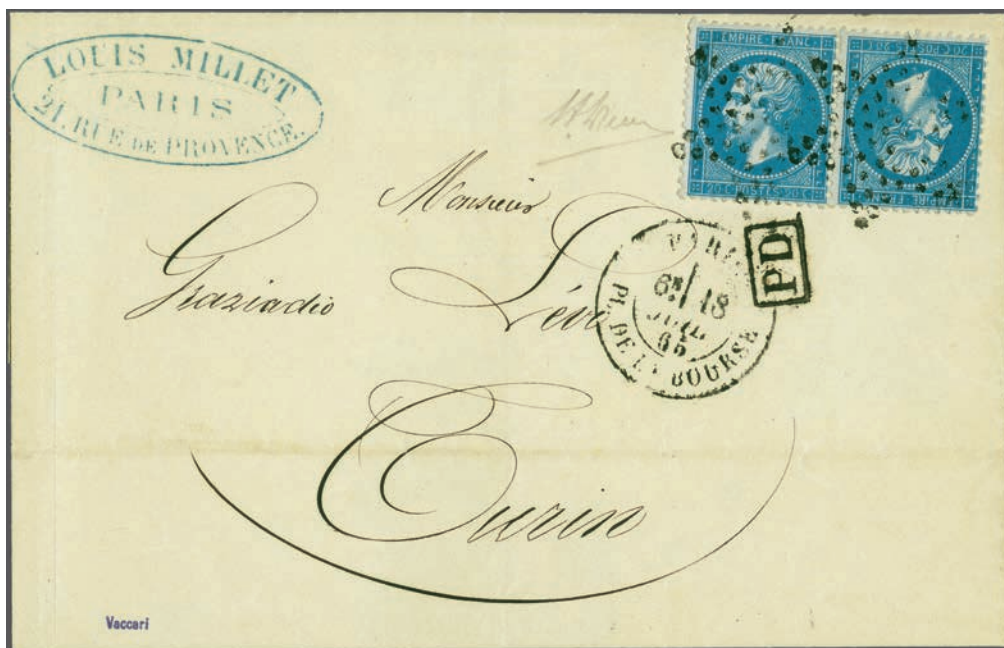 LOUIS MILLET
PARIS
21, RUE DE PROVENCE.
EMPIRE FRANC
20 C POSTES 20 C
20 C POSTES 20 C
EMPIRE FRANC
PD
Monsieur
Graziadio Lévi
PARIS
6E 18
JUIL.
65
PL. DE LA BOURSE
Turin
Vaccari